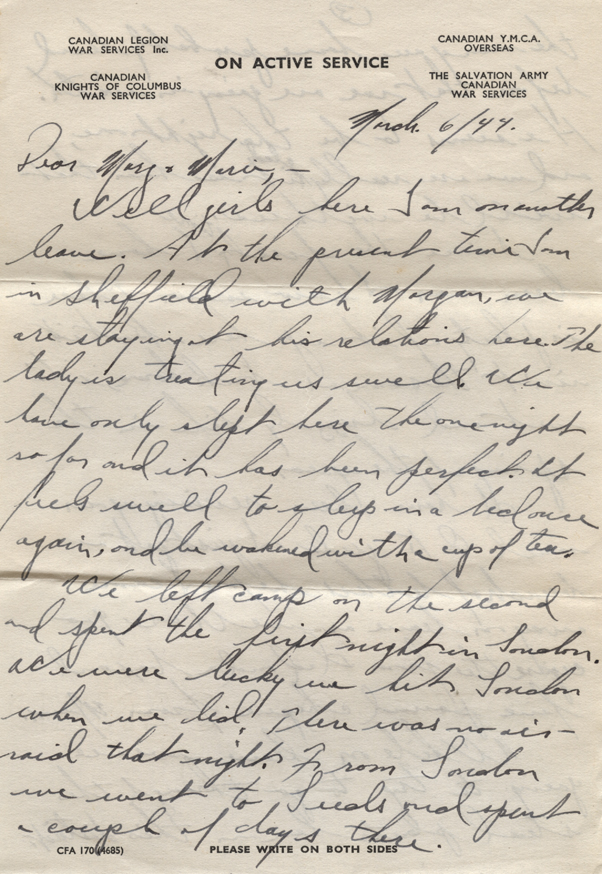 CANADIAN LEGION
WAR SERVICES Inc.
CANADIAN
KNIGHTS OF COLUMBUS
WAR SERVICES
ON ACTIVE SERVICE
CANADIAN Y.M.C.A.
OVERSEAS
THE SALVATION ARMY
CANADIAN
WAR SERVICES
March. 6/44.
Dear Marg & Marie, —
Well girls here I am on another
leave. At the present time I am
in Sheffield with Morgan, we
are staying at his relations here. The
lady is treating us swell. We
have only slept here the one night
so far and it has been perfect. It
feels swell to sleep in a bed once
again, and be wakened with a cup of tea.
We left camp on the second
and spent the first night in London.
We were lucky we hit London
when we did. There was no air-
raid that night. From London
we went to Leeds and spent
a couple of days there.
CFA 170 (4685)
PLEASE WRITE ON BOTH SIDES